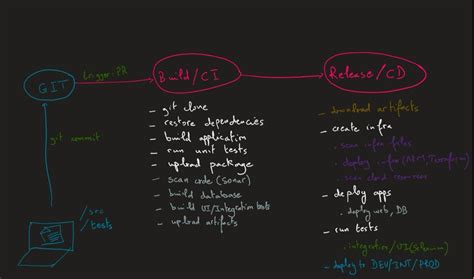 GIT
trigger: PR
Build/CI
Release/CD
git commit
/src
/tests
- git clone
- restore dependencies
- build application
- run unit tests
- upload package
- scan code (Sonar)
- build database
- build UI/Integration tests
- upload artifacts
- download artifacts
- create infra
- scan infra files
- deploy infra (ARM, Terraform)
- scan cloud resources
- deploy apps
- deploy web, DB
- run tests
- integration/UI (Selenium)
- deploy to DEV/INT/PROD